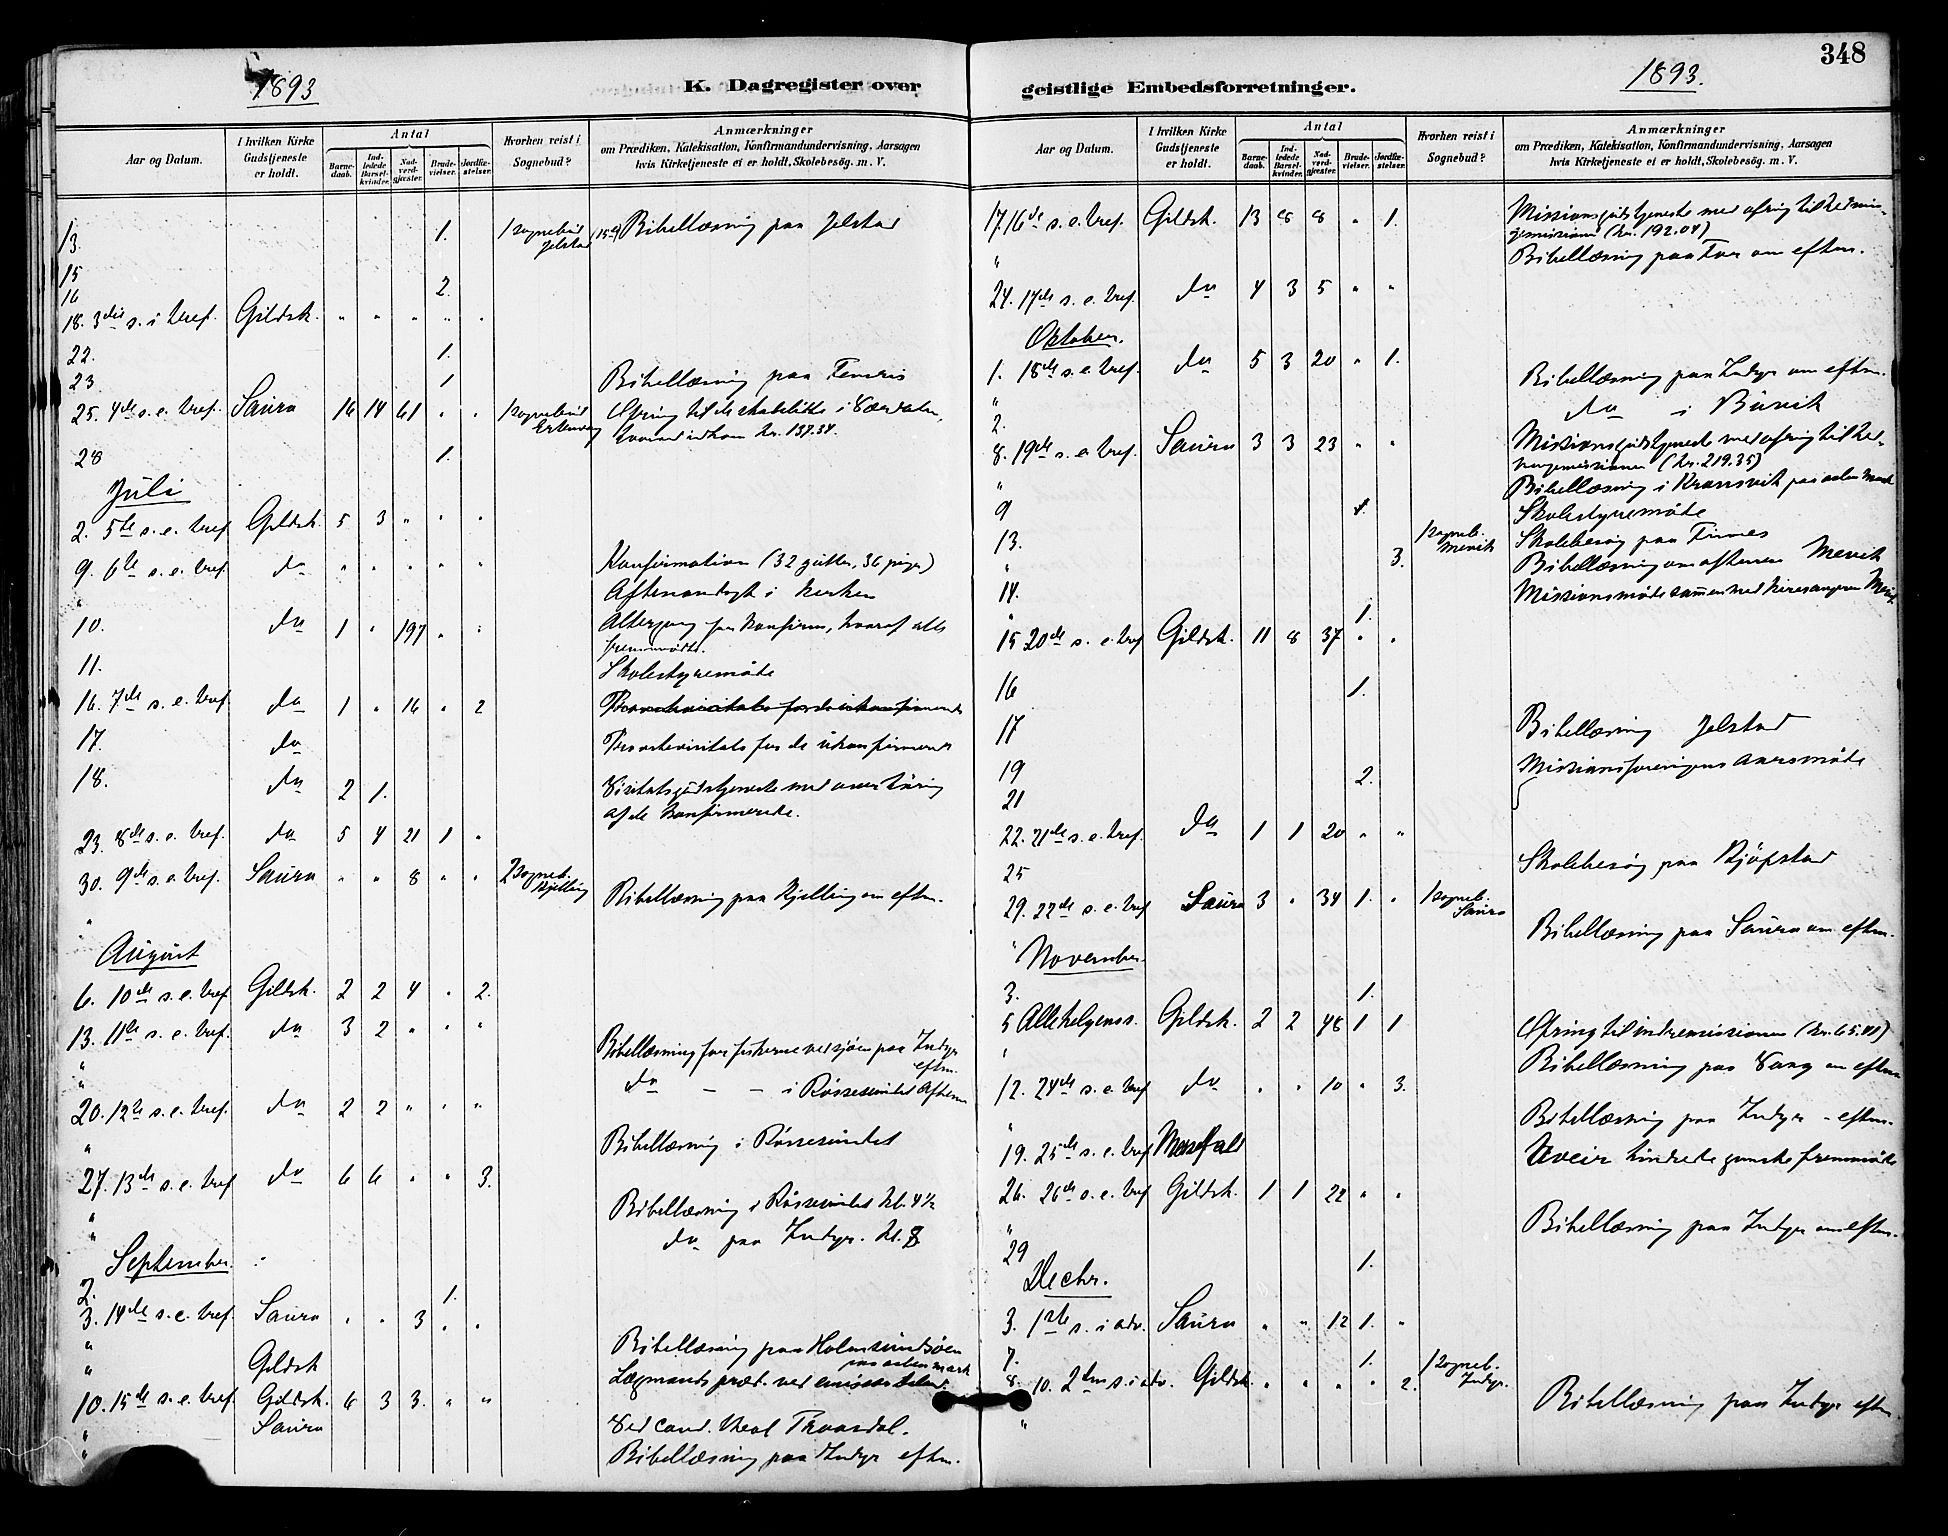 1893
K. Dagregister over
geistlige Embedsforretninger.
1893.
348
Aar og Datum.
I hvilken Kirke Gudstjeneste er holdt.
Antal
Barnedaab.
Indledede Barselkvinder.
Nadverdgjæster.
Brudevielser.
Jordfæstelser.
Hvorhen reist i Sognebud?
Anmærkninger
om Prædiken, Katekisation, Konfirmandundervisning, Aarsagen
hvis Kirketjeneste ei er holdt, Skolebesøg. m. V.
13. 1. 1 sognebud Jelstad (15de) Bibellæsning paa Jelstad
15
16 2.
18. 3die s. i tref. Gildsk. " " " " "
22. 1.
23 1. Bibellæsning paa
25. 4de s. e. tref. Saura 16 14 61 " " 1 sognebud Ofring til de skadelidte i Værdalen,
hvorved indkom kr. 137.34.
28 1.
Juli
2. 5te s. e. tref Gildsk. 5 3 " " "
9. 6te s. e. tref do " " " " " Konfirmation (32 gutter, 36 piger)
" Aftenandagt i kirken
10. do 1 " 197 " " Altergang for konfirm., hvoraf alle
fremmødte.
11. Skolestyremøde
16. 7de s. e. tref. do 1 " 16 " 2
17. do Provstevisitats for de ukonfirmerede
18. do 2 1. Visitatsgudstjeneste med overhøring
af de konfirmerede.
23. 8de s. e. tref. do 5 4 21 1 "
30. 9de s. e. tref. Saura " " 8 " " 2 sogneb. Kjelling
" Bibellæsning paa Kjelling om eftm.
August
6. 10de s. e. tref Gildsk. 2 2 4 " 2.
13. 11te s. e. tref. do 3 2 " " "
" Bibellæsning for fiskerne ved sjøen paa Indyr eftm.
" do — — i Røssesundet Aftenen
20. 12te s. e. tref. do 2 2 " " "
" Bibellæsning i Røssesundet
27. 13de s. e. tref do 6 6 " " 3.
" Bibellæsning i Røssesundet kl. 4 1/2
" do paa Indyr. kl. 8
September.
2. 1.
3. 14de s. e. tref. Saura " " 3 " "
" Bibellæsning paa Holmsundsøen
paa aaben mark
" Gildsk Lægmands præd. ved
10. 15de s. e. tref Gildsk. 6 3 3. " "
Saura Ved cand. theol Traasdal.
" Bibellæsning paa Indyr eftm.
Aar og Datum.
I hvilken Kirke Gudstjeneste er holdt.
Antal
Barnedaab.
Indledede Barselkvinder.
Nadverdgjæster.
Brudevielser.
Jordfæstelser.
Hvorhen reist i Sognebud?
Anmærkninger
om Prædiken, Katekisation, Konfirmandundervisning, Aarsagen
hvis Kirketjeneste ei er holdt, Skolebesøg. m. V.
17. 16de s. e. tref. Gildsk. 13 8 8 " 1. Missionsgudstjeneste med ofring til hednin-
gemissionen (kr. 192.04)
" Bibellæsning paa Far om eftm.
24. 17de s. e. tref. do 4 3 5 " "
Oktober.
1. 18de s. e. tref. do 5 3 20 " 1.
" Bibellæsning paa Indyr om eftm.
2. do i Buvik
8. 19de s. e. tref. Saura 3 3 23 " " Missionsgudstjeneste med ofring til hed-
ningemissionen (kr. 219.35)
" Bibellæsning i Kransvik paa aaben mark
9 1. Skolestyremøde
13. 1 sogneb. Mevik Skolebesøg paa Finnes
" 3. Bibellæsning om aftenen Mevik
14. Missionsmøde sammen med
" 1.
15 20de s. e. tref Gildsk. 11 8 37 " "
16 1.
17 Bibellæsning Jelstad
19 2. Missionsforeningens aarsmøde
21
22. 21de s. e. tref. do 1 1 20 " "
25 Skolebesøg paa Kjøpstad
29. 22de s. e. tref Saura 3 " 34 1. " 1 sogneb. Saura
" Bibellæsning paa Saura om eftm.
November.
3. 1.
5 Allehelgenss. Gildsk. 2 2 48 1 1 Ofring til indremissionen
" Bibellæsning paa Vaag om eftm
12. 24de s. e. tref do " " 10 " 3.
" Bibellæsning paa Indyr - eftm.
19. 25de s. e. tref Messefald Uveir hindrede ganske fremmøde
26. 26de s. e. tref Gildsk. 1 1 22 " "
" Bibellæsning paa Indyr om eftm.
29 1.
Decbr.
3. 1ste s. i adv. Saura " " 12 1. "
7. 1. 1 Sogneb. Indyr.
8. 10. 2den s. i adv. Gildsk. " " " " 2.
" Bibellæsning paa Indyr eftm.